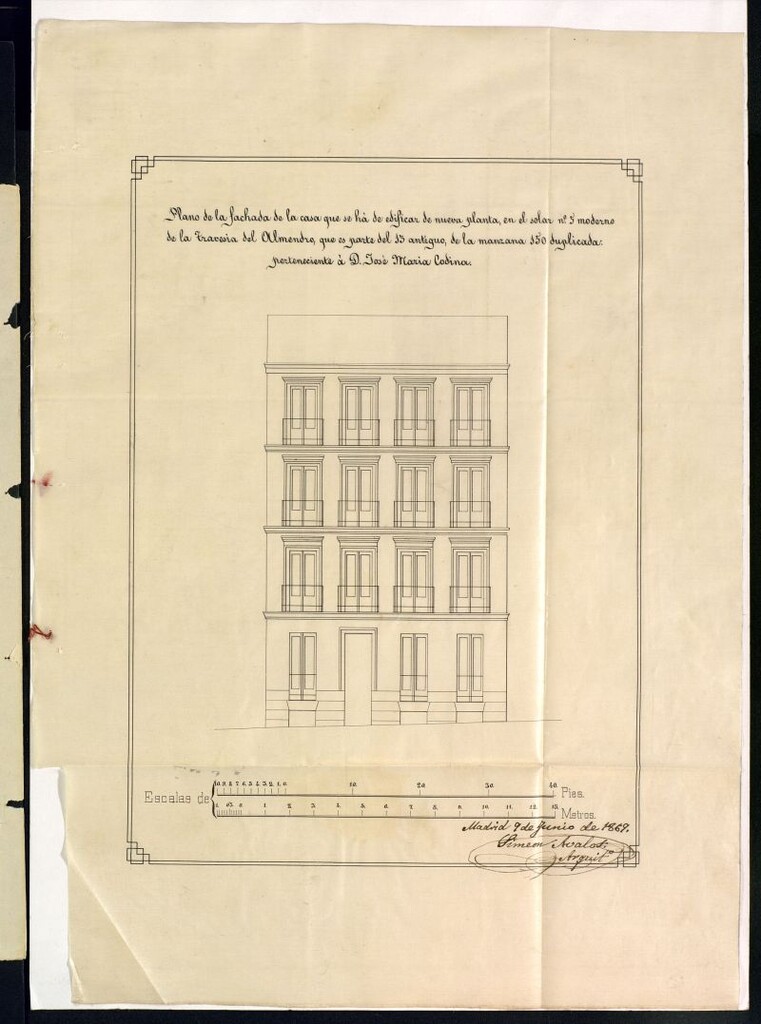 Plano de la fachada de la casa que se há de edificar de nueva planta, en el solar nº 3 moderno
de la Travesia del Almendro, que es parte del 15 antiguo, de la manzana 150 duplicada:
perteneciente á D. José Maria Codina.
10 9 8 7 6 5 4 3 2 1 0 10 20 30 40
Escalas de
Pies.
1 0,5 0 1 2 3 4 5 6 7 8 9 10 11 12 13
Metros.
Madrid 9 de Junio de 1869.
Simeon Avalos;
Arquitº